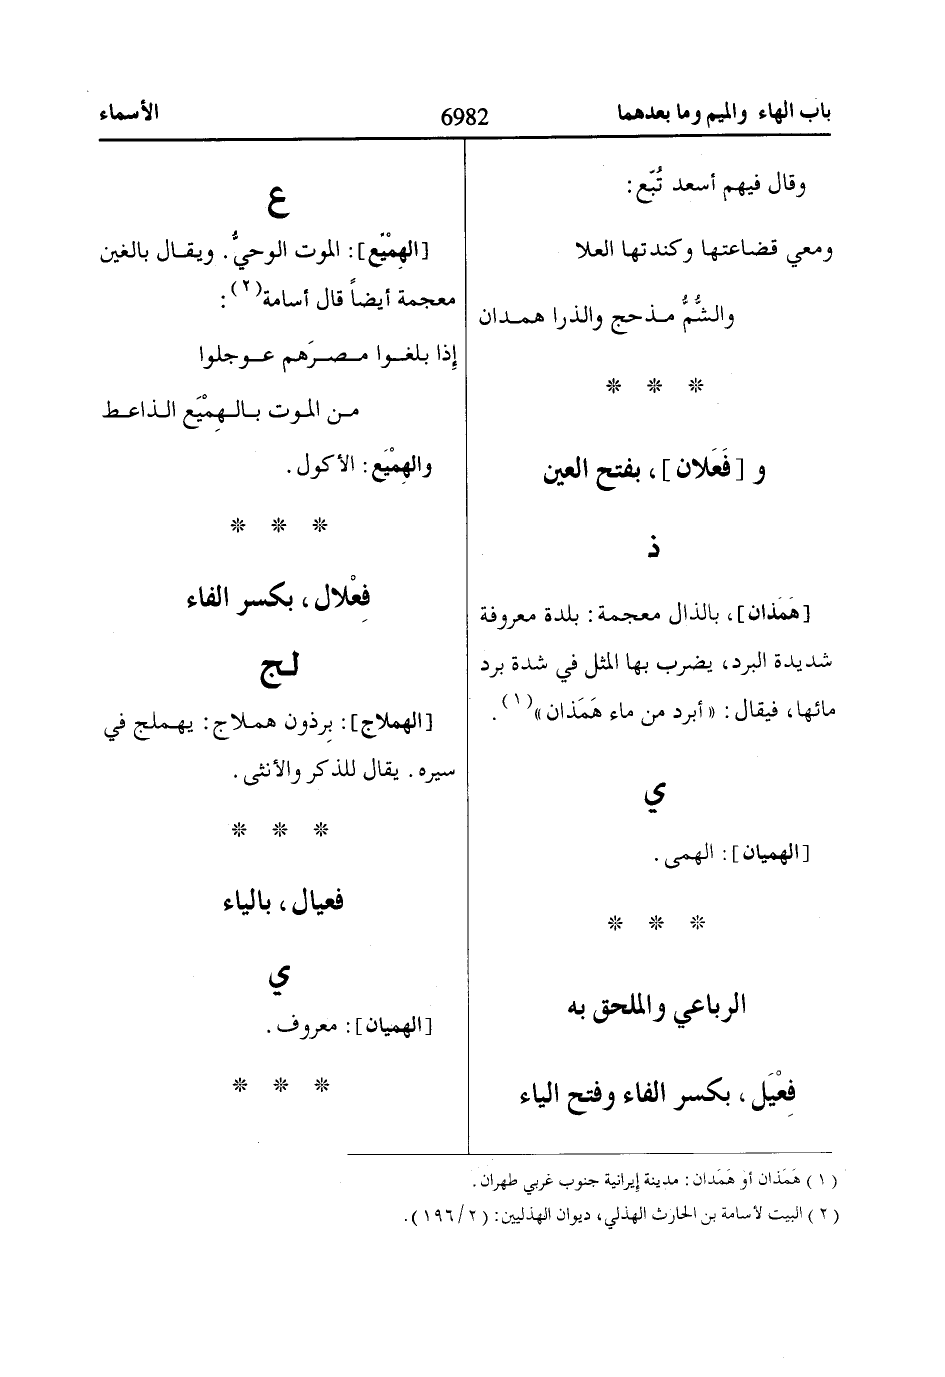 باب الهاء والميم وما بعدهما 6982 الأسماء
وقال فيهم أسعد تُبّع:
ومعي قضاعتها وكندتها العلا
والشُّمُّ مذحج والذرا همدان
❊ ❊ ❊
و [فَعَلان]، بفتح العين
ذ
[هَمَذان]، بالذال معجمة: بلدة معروفة
شديدة البرد، يضرب بها المثل في شدة برد
مائها، فيقال: «أبرد من ماء هَمَذان»(١).
ي
[الهميان]: الهمى.
❊ ❊ ❊
الرباعي والملحق به
فِعْيَل، بكسر الفاء وفتح الياء
ع
[الهِمْيَع]: الموت الوحيُّ. ويقال بالغين
معجمة أيضاً قال أسامة(٢):
إذا بلغوا مصرَهم عوجلوا
من الموت بالهِمْيَع الذاعط
والهِمْيَع: الأكول.
❊ ❊ ❊
فِعْلال، بكسر الفاء
لج
[الهملاج]: بِرذون هملاج: يهملج في
سيره. يقال للذكر والأنثى.
❊ ❊ ❊
فعيال، بالياء
ي
[الهميان]: معروف.
❊ ❊ ❊
(١) هَمَذان أو هَمَدان: مدينة إيرانية جنوب غربي طهران.
(٢) البيت لأسامة بن الحارث الهذلي، ديوان الهذليين: (٢/١٩٦).